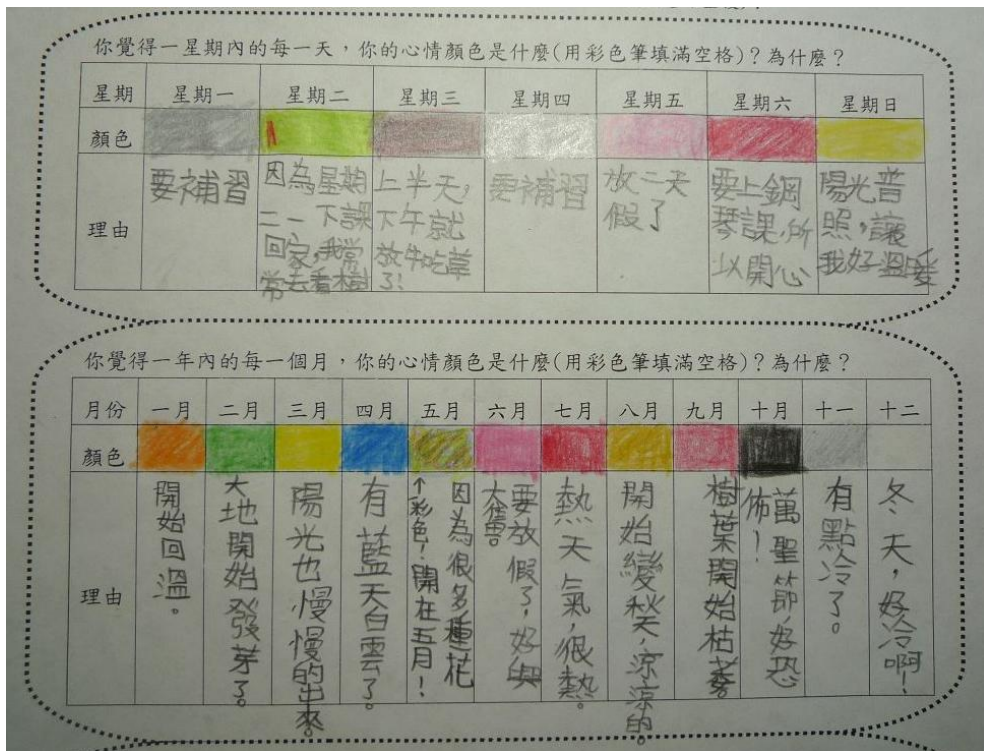 你覺得一星期內的每一天，你的心情顏色是什麼(用彩色筆填滿空格)？為什麼？
星期 星期一 星期二 星期三 星期四 星期五 星期六 星期日
顏色
理由
要補習
因為星期
二一下課
回家,我常
常去看樹
上半天,
下午就
放牛吃草
了!
要補習
放二天
假了
要上鋼
琴課,所
以開心
陽光普
照,讓
我好溫暖
你覺得一年內的每一個月，你的心情顏色是什麼(用彩色筆填滿空格)？為什麼？
月份 一月 二月 三月 四月 五月 六月 七月 八月 九月 十月 十一 十二
顏色
理由
開始回溫。
大地開始發芽了。
陽光也慢慢的出來。
有藍天白雲了。
因為很多種花
↑彩色!開在五月!
要放假了,好興
熱天氣,很熱。
開始變秋天,涼涼的。
樹葉開始枯萎。
萬聖節,好恐
佈!
有點冷了。
冬天,好冷啊!